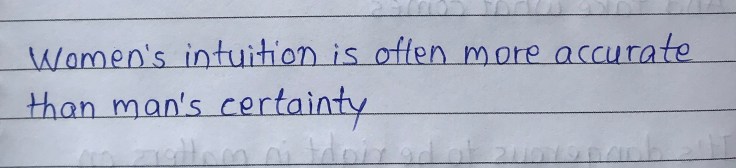 Women's intuition is often more accurate
than man's certainty